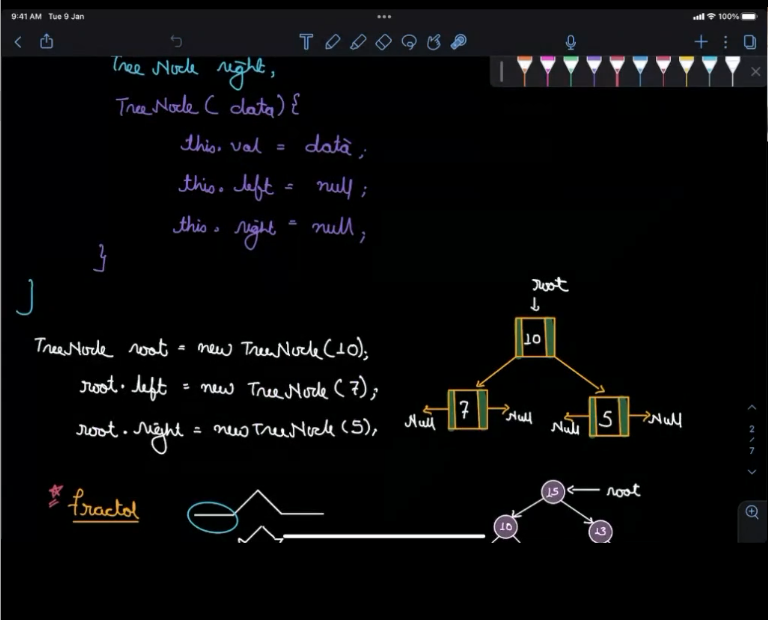 9:41 AM Tue 9 Jan
100%
TreeNode right;
TreeNode( data){
this.val = data;
this.left = null;
this.right = null;
}
}
TreeNode root = new TreeNode(10);
root.left = new TreeNode(7);
root.right = new TreeNode(5);
root
10
7
5
Null
Null
Null
Null
2
7
fractol
15
root
10
13